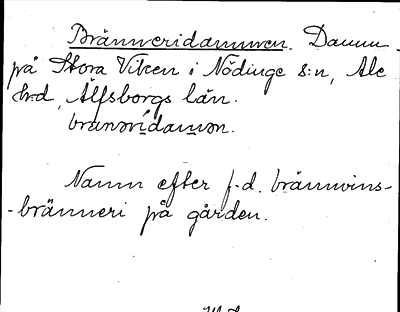 Bränneridammen. Damm
på Stora Viken i Nödinge s:n, Ale
hd, Älfsborgs län.
bränərídamən.
Namn efter f.d. brännvins-
-bränneri på gården.